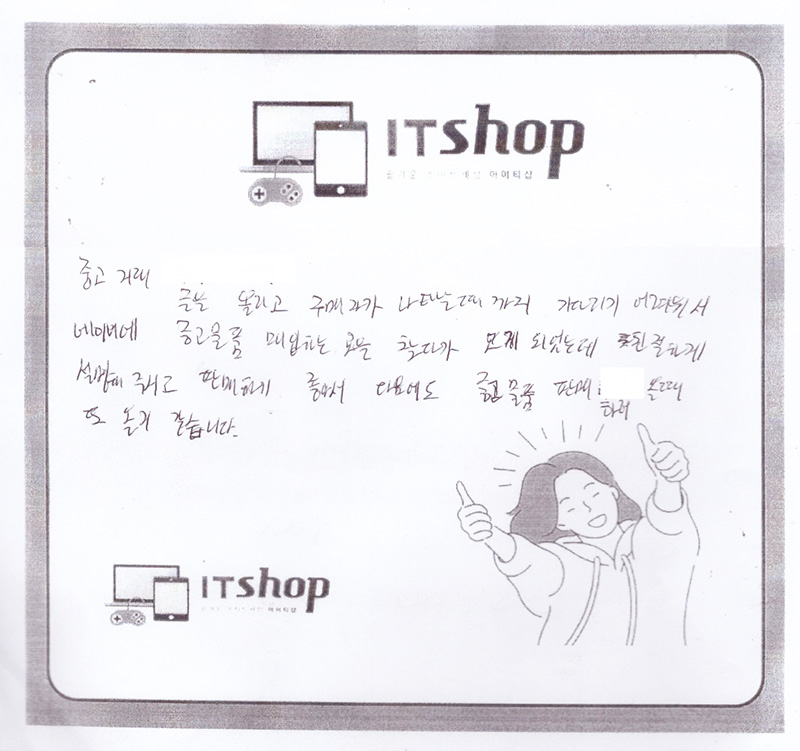 ITshop
아이티샵
중고 거래
글을 올리고 구매자가 나타날때까지 기다리기 어려워서
네이버에 중고물품 매입하는 곳을 찾다가 오게 되었는데 친절하게
설명해 주시고 판매하게 좋아서 다음에도 중고물품 판매 올때
하러
또 올거 같습니다.
ITshop
아이티샵